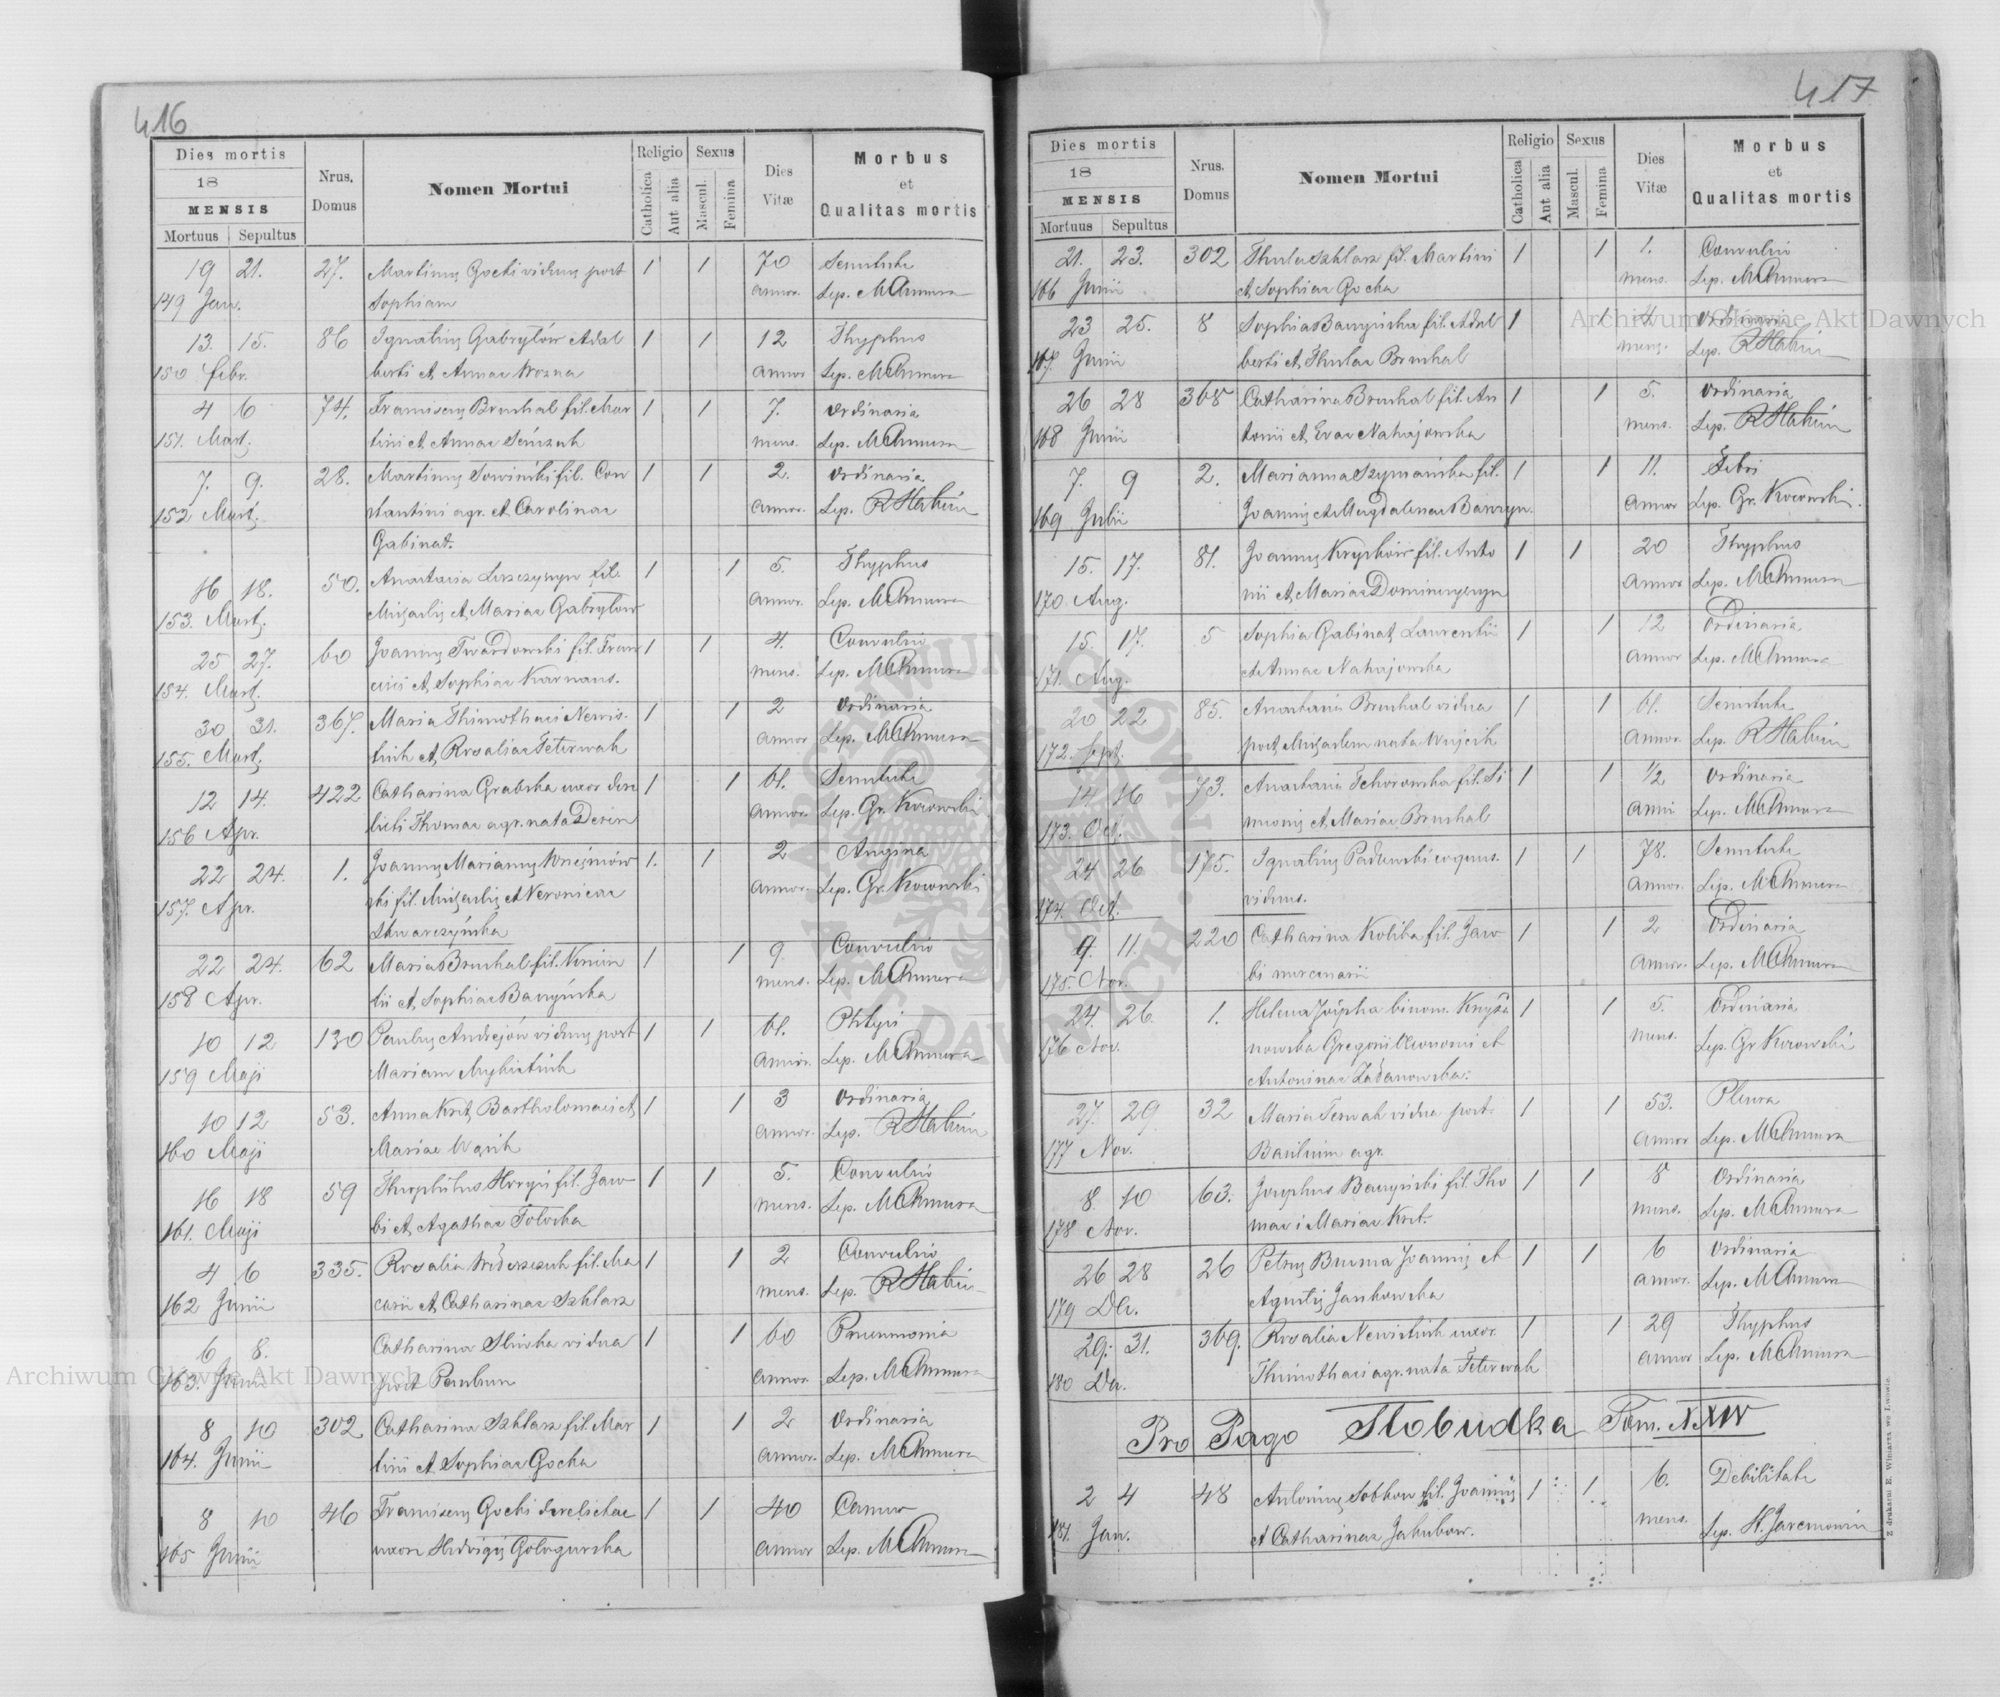 416
Dies mortis
18
MENSIS
Mortuus Sepultus
Nrus. Domus
Nomen Mortui
Religio
Catholica
Aut alia
Sexus
Mascul.
Femina
Dies Vitæ
Morbus
et
Qualitas mortis
19 21. 27. Martinus Gocki viduus post 1 1 70 Senectute
149 Jan. Sophiam annor. Sep. M Chmura
13. 15. 86 Ignatius Gabrylów Adal 1 1 12 Thyphus
150 febr. berti et Annae Wozna annor Sep. M Chmura
4 6 74. Franciscus Bruchal fil. Mar 1 1 7. ordinaria
151. Mart. tini et Annae mens. Sep. M Chmura
7. 9. 28. Martinus Sowiński fil. Con 1 1 2. ordinaria
152 Mart. stantini agr. et Carolinae annor. Sep.
Gabinat.
16 18. 50. Anastasia fil. 1 1 5. Thyphus
153. Mart. Michaelis et Mariae Gabrylow annor. Sep. M Chmura
25 27. 60 Joannes Twardowski fil. Fran 1 1 4. Convulsio
154. Mart. cisci et Sophiae Karnaus. mens. Sep. M Chmura
30 31. 367. Maria Thimothaei Newis 1 1 2 ordinaria
155. Mart. tiuk et Rosaliae Teterwak annor Sep. M Chmura
12 14. 422 Catharina Grabska uxor dere 1 1 61. Senectute
156 Apr. licti Thomae agr. nata annor. Sep. Gr. Kurowski
22 24. 1. Joannes Marianus 1. 1 2 Angina
157. Apr. ski fil. Michaelis et Veronicae annor. Sep. Gr. Kurowski
Skwarczyńska
22 24. 62 Maria Bruchal fil. 1 1 9. Convulsio
158 Apr. tii et Sophiae Baczyńska mens. Sep. M Chmura
10 12 130 Paulus Andrejów viduus post 1 1 61. Phtysi
159 Maji Mariam Mykietiuk annor. Sep. M Chmura
10 12 53. Anna Bartholomaei et 1 1 3 ordinaria
160 Maji Mariae annor. Sep.
16 18 59 Theophilus fil. Jaco 1 1 5. Convulsio
161. Maji bi et Agathae mens. Sep. M Chmura
4 6 335. Rosalia fil. Ma 1 1 2 Convulsio
162 Junii carii et Catharinae Szklarz mens. Sep.
6 8. Catharina Sliwka vidua 1 1 60 Pneumonia
163. Junii post Paulum annor. Sep. M Chmura
8 10 302 Catharina Szklarz fil. Mar 1 1 2 ordinaria
164. Junii tini et Sophiae Gocka annor. Sep. M Chmura
8 10 46 Franciscus Gocki derelictae 1 1 40 Cancer
165 Junii uxore Hedvigis Gologurska annor Sep. M Chmura
417
Dies mortis
18
MENSIS
Mortuus Sepultus
Nrus. Domus
Nomen Mortui
Religio
Catholica
Aut alia
Sexus
Mascul.
Femina
Dies Vitæ
Morbus
et
Qualitas mortis
21. 23. 302 Thecla Szklarz fil. Martini 1 1 1. Convulsio
166 Junii et Sophiae Gocka mens. Sep. M Chmura
23 25. 8 Sophia Baczyńska fil. Adal 1 1 4 ordinaria
167. Junii berti et Theclae Bruchal mens. Sep.
26 28 368 Catharina Bruchal fil. An 1 1 5. ordinaria
168 Junii tonii et Evae Nahajowska mens. Sep.
7. 9 2. Marianna Szymańska fil. 1 1 11. Febri
169 Julii Joannis et Magdalenae Baczyn. annor Sep. Gr. Kurowski.
15. 17. 81. Joannes Krypków fil. Anto 1 1 20 Thyphus
170. Aug. nii et Mariae annor Sep. M Chmura
15. 17. 5 Sophia Gabinat Laurentii 1 1 12 Ordinaria
171. Aug. et Annae Nahajowska annor Sep. M Chmura
20 22 85. Anastasia Bruchal vidua 1 1 61. Senectute
172. Sept. post Michaelem nata Wujcik annor. Sep.
14. 16 73. Anastasia Tchorowska fil. Si 1 1 1/2 ordinaria
173. Oct. meonis et Mariae Bruchal anni Sep. M Chmura
24 26 175. Ignatius Padewski coquus. 1 1 78. Senectute
174. Oct. viduus. annor. Sep. M Chmura
9. 11. 220 Catharina Koliba fil. Jaco 1 1 2 Ordinaria
175. Nov. bi mercenarii annor. Sep. M Chmura
24. 26. 1. Helena Josepha binom. 1 1 5. Ordinaria
176 Nov. nowska Gregorii Oeconomi et mens. Sep. Gr Kurowski
Antoninae
27. 29. 32 Maria vidua post 1 1 53. Pleura
177 Nov. Basilium agr. annor Sep. M Chmura
8. 10 63. Josephus Baczyński fil. Tho 1 1 8 Ordinaria
178 Nov. mae i Mariae mens. Sep. M Chmura
26 28 26 Petrus Burma Joannis et 1 1 6 ordinaria
179 De. Agnetis Jankowska annor. Sep. M Chmura
29. 31. 369. Rosalia Newistiuk uxor. 1 1 29 Thyphus
180 De. Thimothaei agr. nata Teterwak annor Sep. M Chmura
Pro Pago Slobudka Tom. XXIV
2 4 48 Antonius Sobkow fil. Joannis 1 1. 6. Debilitate
181. Jan. et Catharinae Jakubow. mens. Sep. H. Jaremowicz
Z drukarni E. Winiarza we Lwowie.
Archiwum Główne Akt Dawnych
Archiwum Główne Akt Dawnych
ARCHIWUM GŁÓWNE AKT DAWNYCH